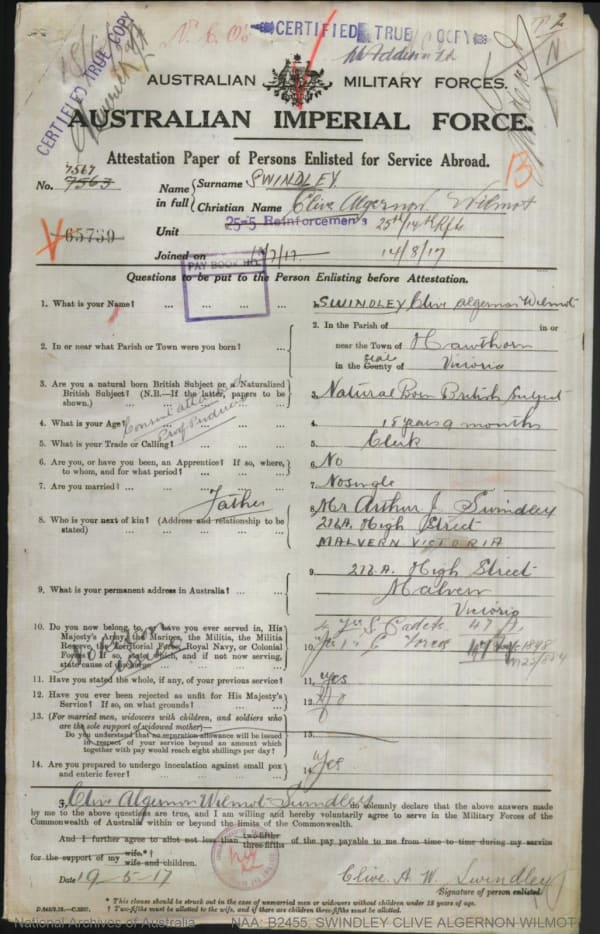 CERTIFIED TRUE COPY
CERTIFIED TRUE COPY
N.C.O's
P2
N
AUSTRALIAN MILITARY FORCES.
AUSTRALIAN IMPERIAL FORCE.
Attestation Paper of Persons Enlisted for Service Abroad.
13
7567
No. 7563
Name in full { Surname SWINDLEY
Christian Name Clive Algernon Wilmot
65739
Unit 25-5 Reinforcements 25th/14th Rfts
Joined on 14/8/17
PAY BOOK No.
Questions to be put to the Person Enlisting before Attestation.
1. What is your Name? ... 1. SWINDLEY Clive Algernon Wilmot
2. In or near what Parish or Town were you born? ... 2. In the Parish of in or
near the Town of Hawthorn
in the County of Victoria
3. Are you a natural born British Subject or a Naturalized
British Subject? (N.B.—If the latter, papers to be
shown.) 3. Natural Born British Subject
4. What is your Age? 4. 18 years 9 months
5. What is your Trade or Calling? 5. Clerk
6. Are you, or have you been, an Apprentice? If so, where,
to whom, and for what period? 6. No
7. Are you married? 7. No single
Father
8. Who is your next of kin? (Address and relationship to be
stated) 8. Mr Arthur J. Swindley
218A. High Street
MALVERN VICTORIA
9. What is your permanent address in Australia? ... 9. 218A. High Street
Malvern
Victoria
10. Do you now belong to, or have you ever served in, His
Majesty's Army, the Marines, the Militia, the Militia
Reserve, the Territorial Force, Royal Navy, or Colonial
Forces? If so, state which, and if not now serving,
state cause of discharge. 10. Yes Cadets 47 A.
Yes C Forces
11. Have you stated the whole, if any, of your previous service? 11. Yes
12. Have you ever been rejected as unfit for His Majesty's
Service? If so, on what grounds? 12. No
13. (For married men, widowers with children, and soldiers who
are the sole support of widowed mother)—
Do you understand that no separation allowance will be issued
in respect of your service beyond an amount which
together with pay would reach eight shillings per day? 13.
14. Are you prepared to undergo inoculation against small pox
and enteric fever? 14. Yes
I, Clive Algernon Wilmot Swindley do solemnly declare that the above answers made
by me to the above questions are true, and I am willing and hereby voluntarily agree to serve in the Military Forces of the
Commonwealth of Australia within or beyond the limits of the Commonwealth.
And I further agree to allot not less than two-fifths three-fifths of the pay payable to me from time to time during my service
for the support of my wife.* † wife and children.
Date 19-5-17
Clive. A. W. Swindley
Signature of person enlisted.
* This clause should be struck out in the case of unmarried men or widowers without children under 18 years of age.
† Two-fifths must be allotted to the wife, and if there are children three-fifths must be allotted.
National Archives of Australia
NAA: B2455, SWINDLEY CLIVE ALGERNON WILMOT